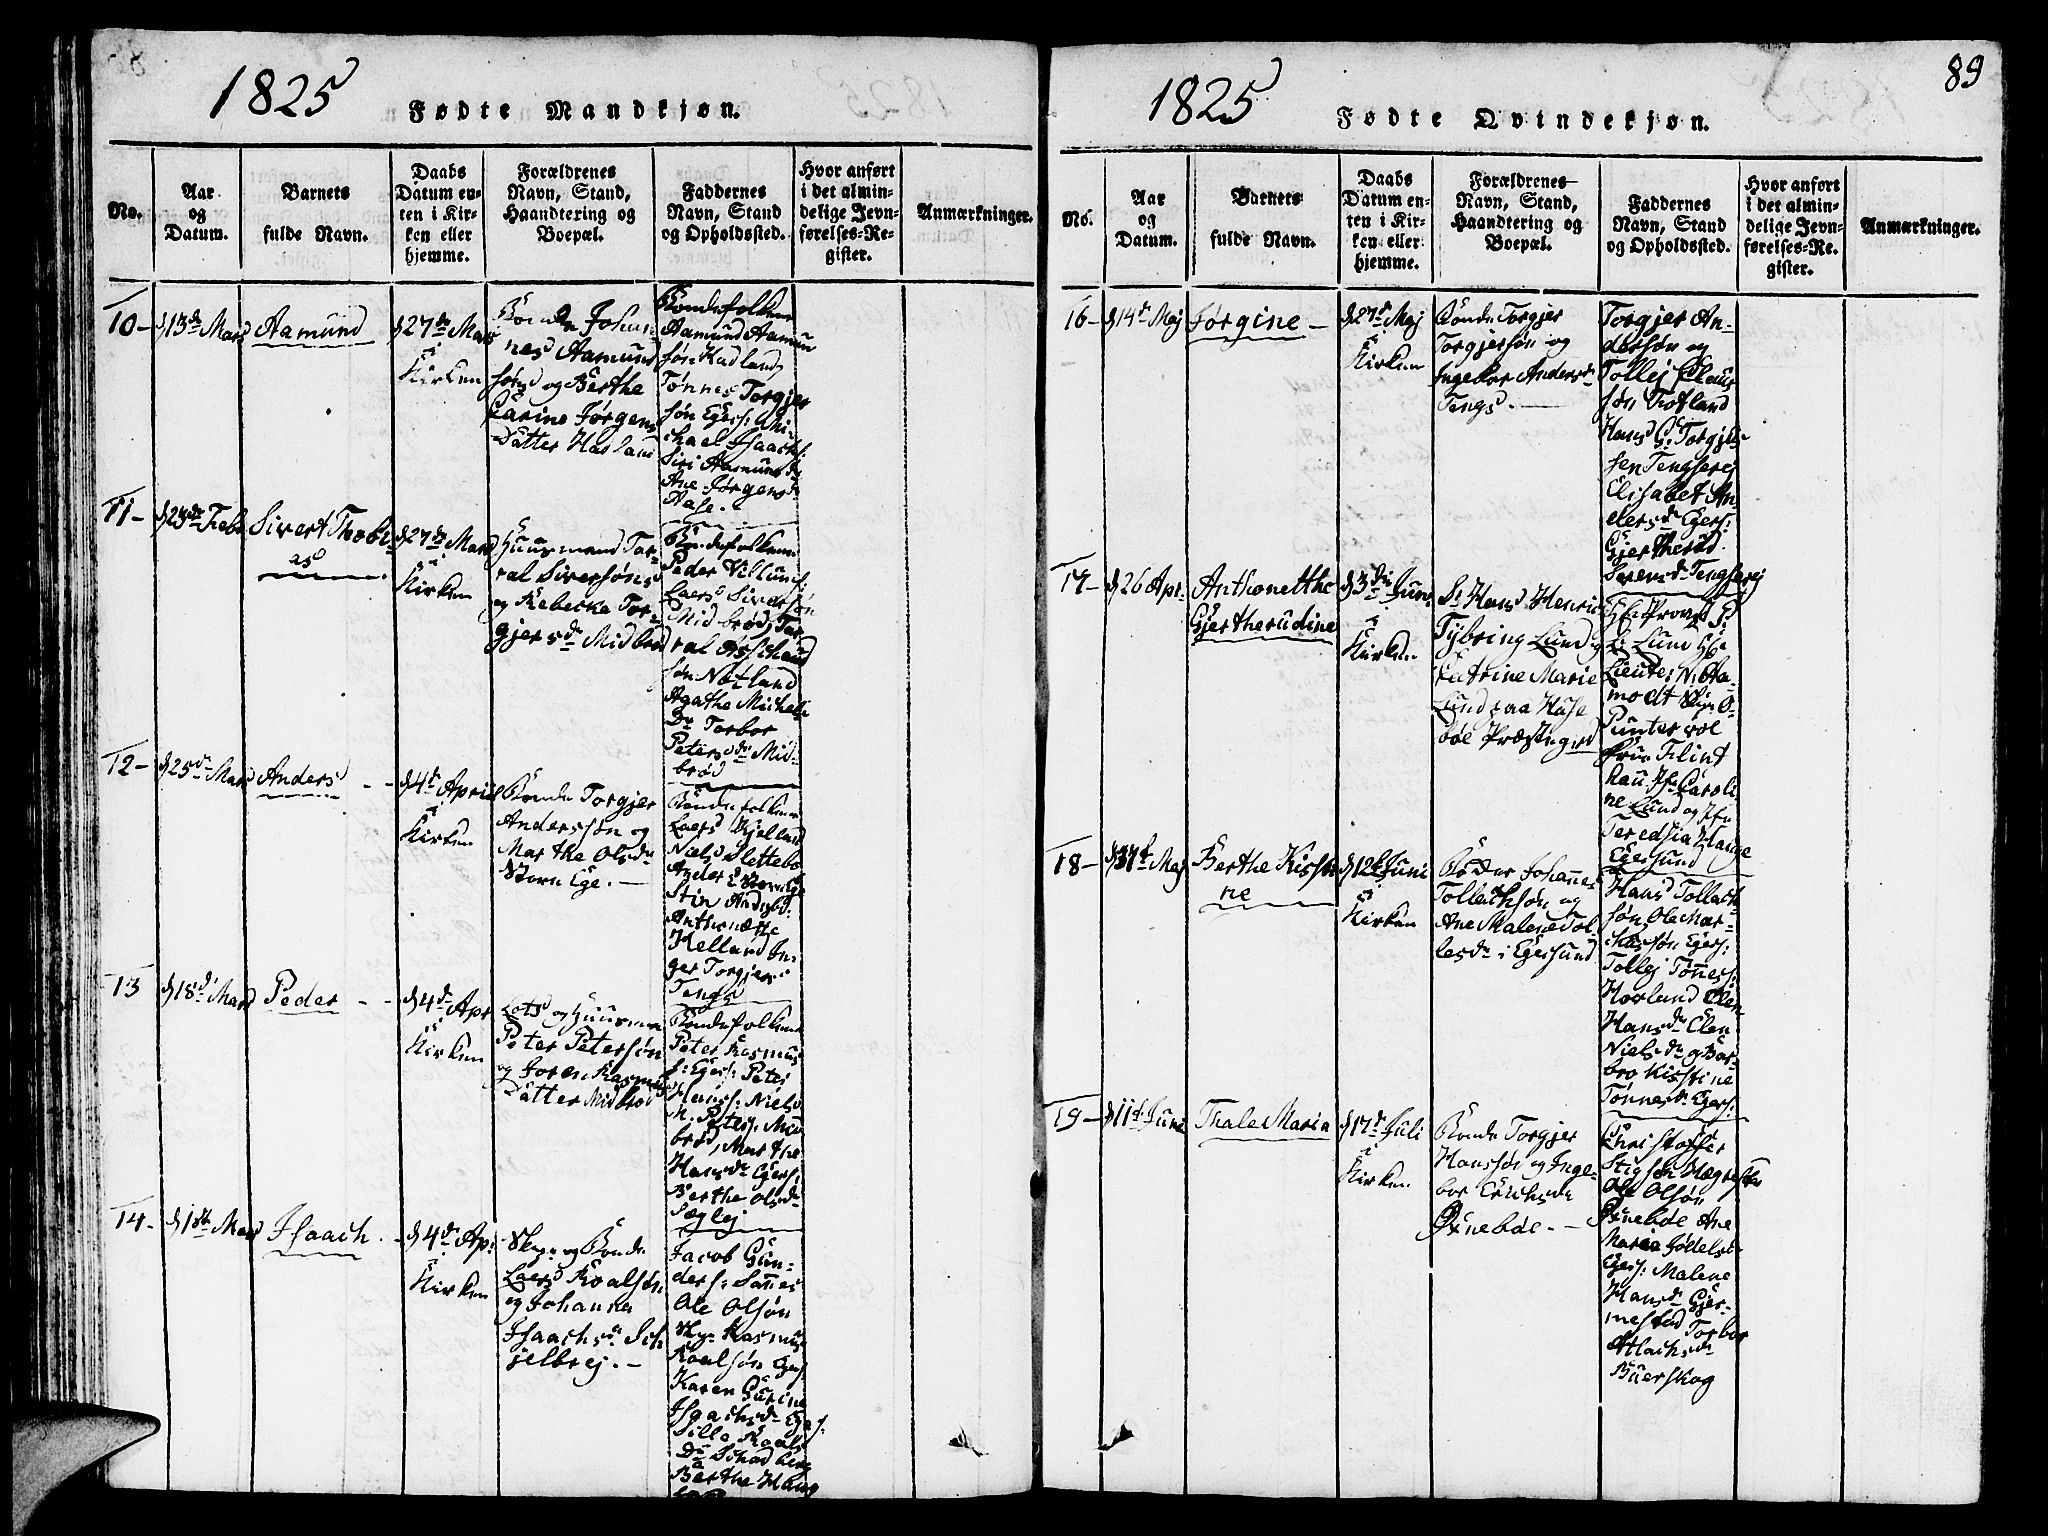 1825
Fødte Mandkjøn.
No.
Aar
og
Datum.
Barnets
fulde Navn.
Daabs
Datum en-
ten i Kir-
ken eller
hjemme.
Forældrenes
Navn, Stand,
Haandtering og
Boepæl.
Faddernes
Navn, Stand
og Opholdssted.
Hvor anført
i det almin-
delige Jevn-
førelses-Re-
gister.
Anmærkninger.
10-
d 13de Mars
Aamund
d 27de Mars
i
Kirken
Bonde Johan-
nes Aamund
søn og Berthe
Carine Jørgens
Datter Hasland
Bondefolkene
Aamund Aamun
søn Hadland
Tønnes Torgjer
søn Egers: Mi-
chael Isaachs:
Siri Aamunds dr
Ane Jørgensd
Aase.
11-
d 23de Febr
Sivert Thobi-
as
d 27de Mars
i
Kirken
Huusmand Tor-
ral Siversøn
og Rebecka Tor-
gjersdr Midbrød
Bondefolkene
Peder Villums:
Laers Siversøn
Midbrød, Tor
ral
søn Nøtland
Agathe Michels
Dr Torbor
Petersdr Mid-
brød
12-
d 25de Mars
Anders - -
d 4de April
i
Kirken
Bonde Torgjer
Anderssøn og
Marthe Olsdr
Store Ege.
Bondefolkene
Laers Kjelland
Niels Slettebø
Anders Store Ege
Stin
Anthonette
Helland In-
ger Torgjers
Tengs
13
d 18de Mars
Peder - -
d 4de Apr
i
Kirken
Lots og Huusman
Peter Petersøn
og Joren Rasmus
Datter Midbrød
Bondefolkene
Peter Rasmus
s: Egers: Peter
Hanss: Niels
M. Peters: Mid
brød, Marthe
Hansdr Egers:
Berthe Olsdr
Sæglej
14-
d 1ste Mars
Isaach.
d 4de Ap:
i
Kirken
Skyr og Bonde
Laers Roalsøn
og Johanna
Isaachsdr Sch
jelbrej.
Jacob Gun-
ders: Sannes
Ole Olsøn
Skyr Rasmus
Roalsøn Egers:
Karen Gurine
Isaachsdr Egers:
Sille Roals
Dr Schadberg
Berthe Haug
1825
89
Fødte Qvindekjøn.
No.
Aar
og
Datum.
Barnets
fulde Navn.
Daabs
Datum en-
ten i Kir-
ken eller
hjemme.
Forældrenes
Navn, Stand,
Haandtering og
Boepæl.
Faddernes
Navn, Stand
og Opholdssted.
Hvor anført
i det almin-
delige Jevn-
førelses-Re-
gister.
Anmærkninger.
16-
d 14de Maj
Jørgine
d 27de Maj
i
Kirken
Bonde Torgjer
Torgjersøn og
Ingebor Andersdr
Tengs.
Torgjer An-
dersøn og
Tollej Claus
søn Trotland
Hans G: Torgjer-
sen Tengserej
Elisabet An-
dersdr Egers:
Gjertherud
Sørensdr Tengserej
17-
d 26 Apr.
Anthonetthe
Gjertherudine
d 3die Juni
i
Kirken
Sr Hans Henric
Tybring Lund og
Catrine Marie
Lund paa Huse
bøe Præstegrd
HEr Provst P.
L: Lund Hr
Lieute: N: Aa-
modt Skyr O-
Puntervol
Frue Flint
haū: Jfr Caroli-
ne Lund og Jfr
Teredsia Hauge
Egersund
18-
d 31te Maj
Berthe Kisti-
ne
d 12te Juni
i
Kirken
Bøder Johannes
Tollachsøn og
Ane Malene Tol-
lesdr i Egersund
Hans Tollach
søn Ole Mar-
chussøn Egers:
Tollej Tønness:
Hovland Elen
Hansdr Elen
Nielsdr og Bar-
bro Kisstine
Tønnesdr Egers:
19-
d 11te Juni
Thale Maria
d 17de Juli
i
Kirken
Bonde Torgjer
Hanssøn og Inge-
bor Erichsdr
Øxnebøe.
Christoffer
Stigsøn Hægrestad
Ole Olsøn
Øxnebøe Ane
Maria
Egers: Malene
Hansdr Gjer-
mestad Torbor
Atlachsdr
Buerskog